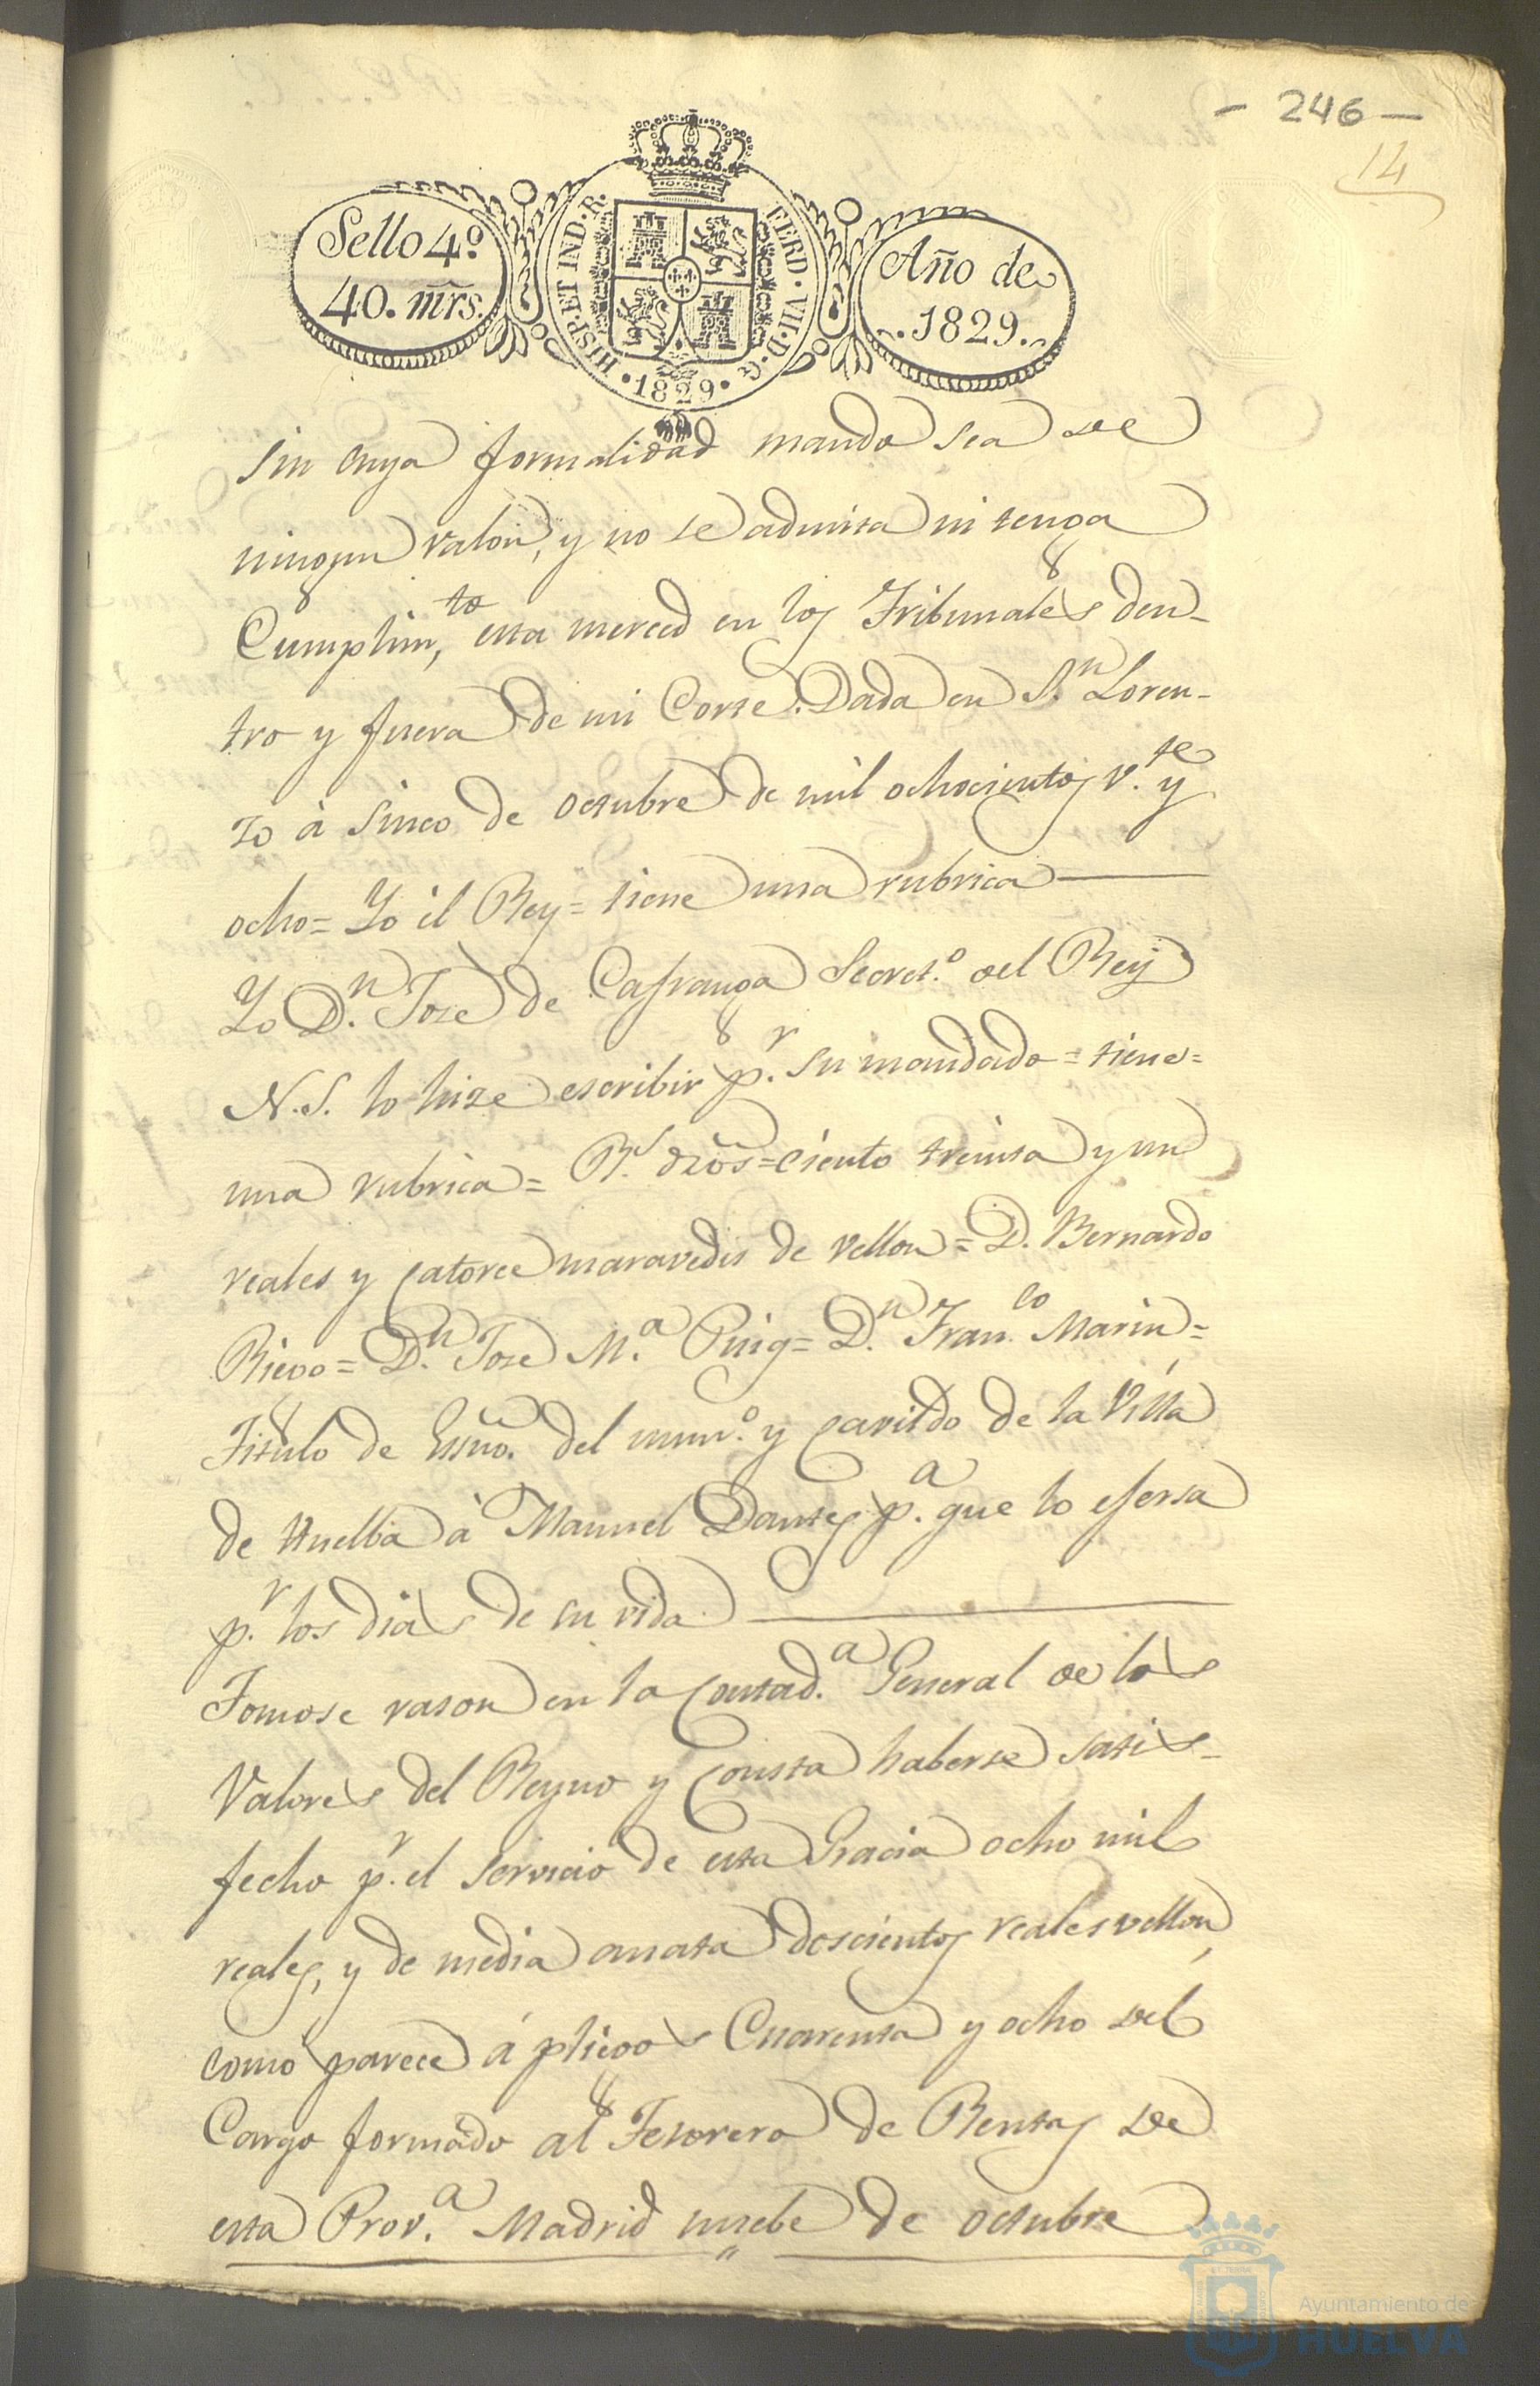 - 246 -
14
Sello 4º
40. mrs.
HISP. ET IND. R.
FERD. VII. D. G
• 1829 •
Año de
1829
sin cuya formalidad mando sea de
ningun valor, y no se admita ni tenga
Cumplim,to esta merced en los Tribunales den-
tro y fuera de mi Corte. Dada en S.n Loren-
zo á Sinco de octubre de mil ochocientos v.te y
ocho = Yo él Rey = tiene una rubrica
Yo D.n José de Cafranga Secret.o del Rey
N.S. lo hize escribir p.r su mandado = tiene =
una rubrica = R.s dros = ciento treinta y un
reales y catorce maravedis de vellon = D. Bernardo
Riego = D.n Jose M.a Puig = D.n Fran.co Marin =
Titulo de Essno. del num.o y cavildo de la Villa
de Huelba á Manuel Dantes p.a que lo ejersa
p.r los dias de su vida
Tomose rason en la Contad.a General de los
Valores del Reyno y Consta haberse satis-
fecho p.r el servicio de esta Gracia ocho mil
reales, y de media anata doscientos reales vellon,
como parece á pliegos Cuarenta y ocho del
Cargo formado al Tesorero de Rentas de
esta Prov.a Madrid nuebe de octubre
Ayuntamiento de
HUELVA